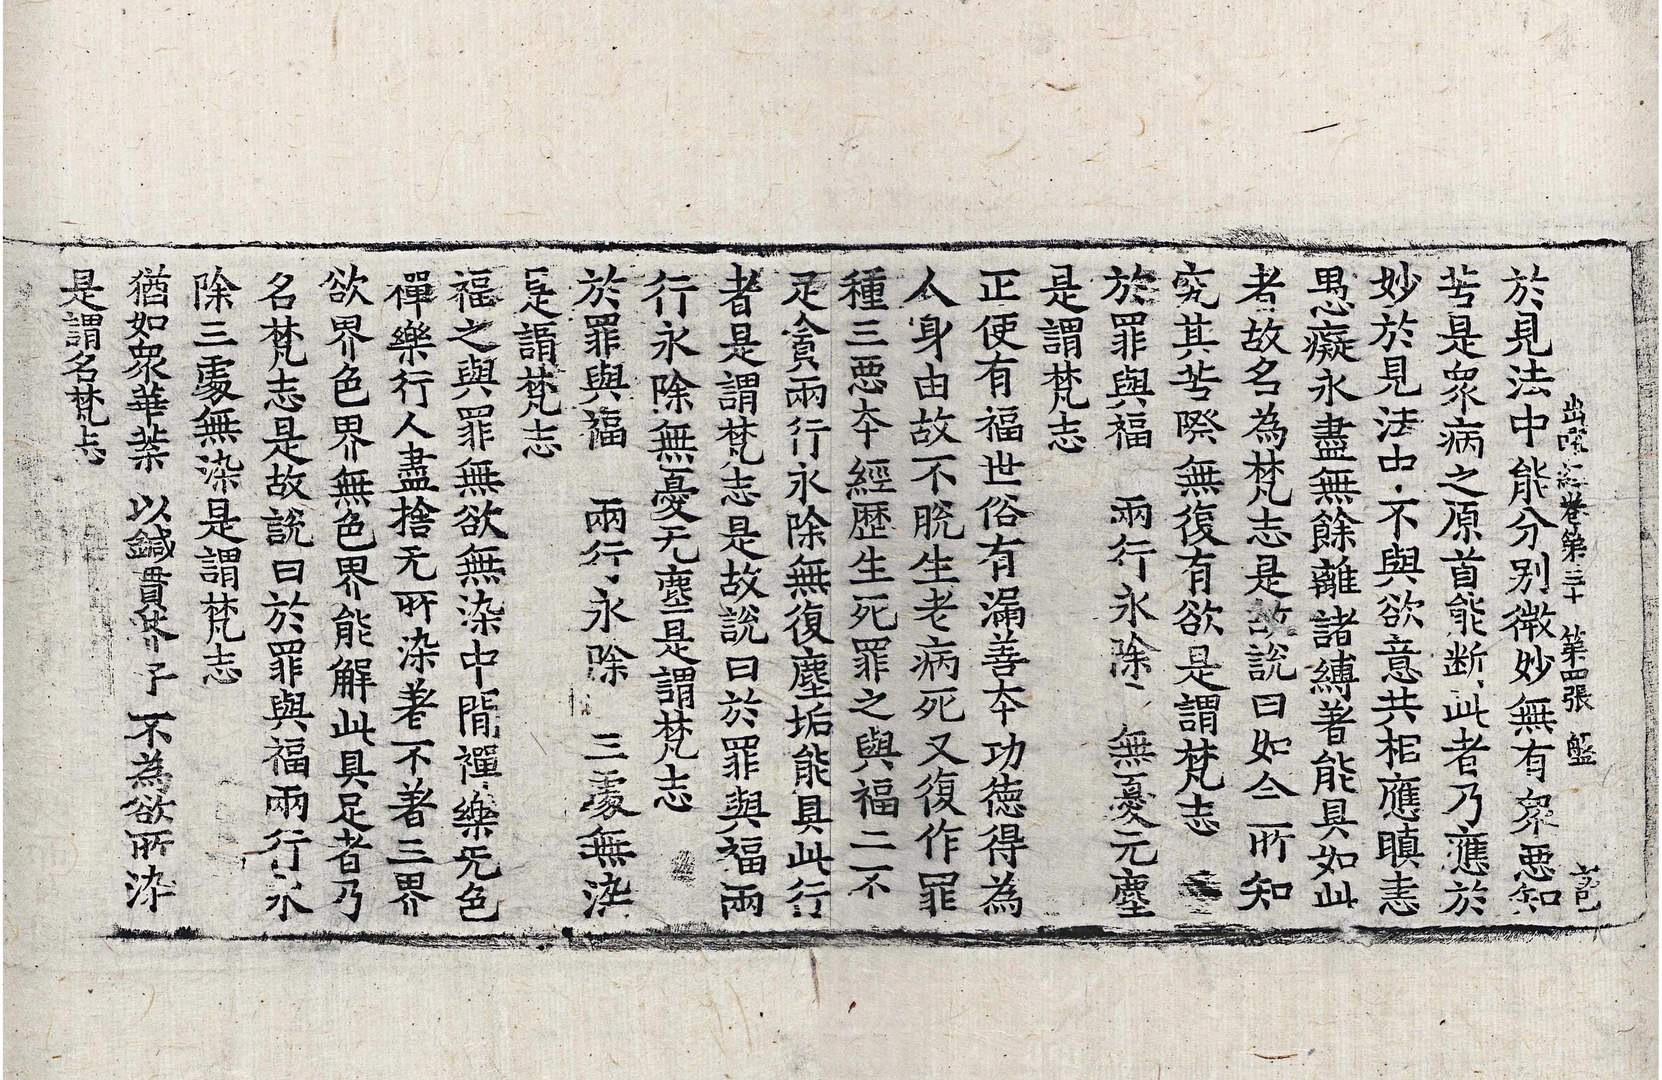 出曜經卷第三十 第四張 盤
於見法中能分別微妙無有衆惡知
苦是衆病之原首能断此者乃應於
妙於見法中不與欲意共相應瞋恚
愚癡永盡無餘離諸縛著能具如此
者故名為梵志是故說曰如今所知
究其苦際無復有欲是謂梵志
於罪與福 兩行永除 無憂无塵
是謂梵志
正使有福世俗有漏善夲功德得為
人身由故不脫生老病死又復作罪
種三惡夲經歴生死罪之與福二不
足貪兩行永除無復塵垢能具此行
者是謂梵志是故說曰於罪與福兩
行永除無憂无塵是謂梵志
於罪與福 兩行永除 三處無染
是謂梵志
福之與罪無欲無染中閒禪樂無色
禪樂行人盡捨无所染著不著三界
欲界色界無色界能解此具足者乃
名梵志是故說曰於罪與福兩行永
除三處無染是謂梵志
猶如衆華葉 以鍼貫芥子 不為欲所染
是謂名梵志